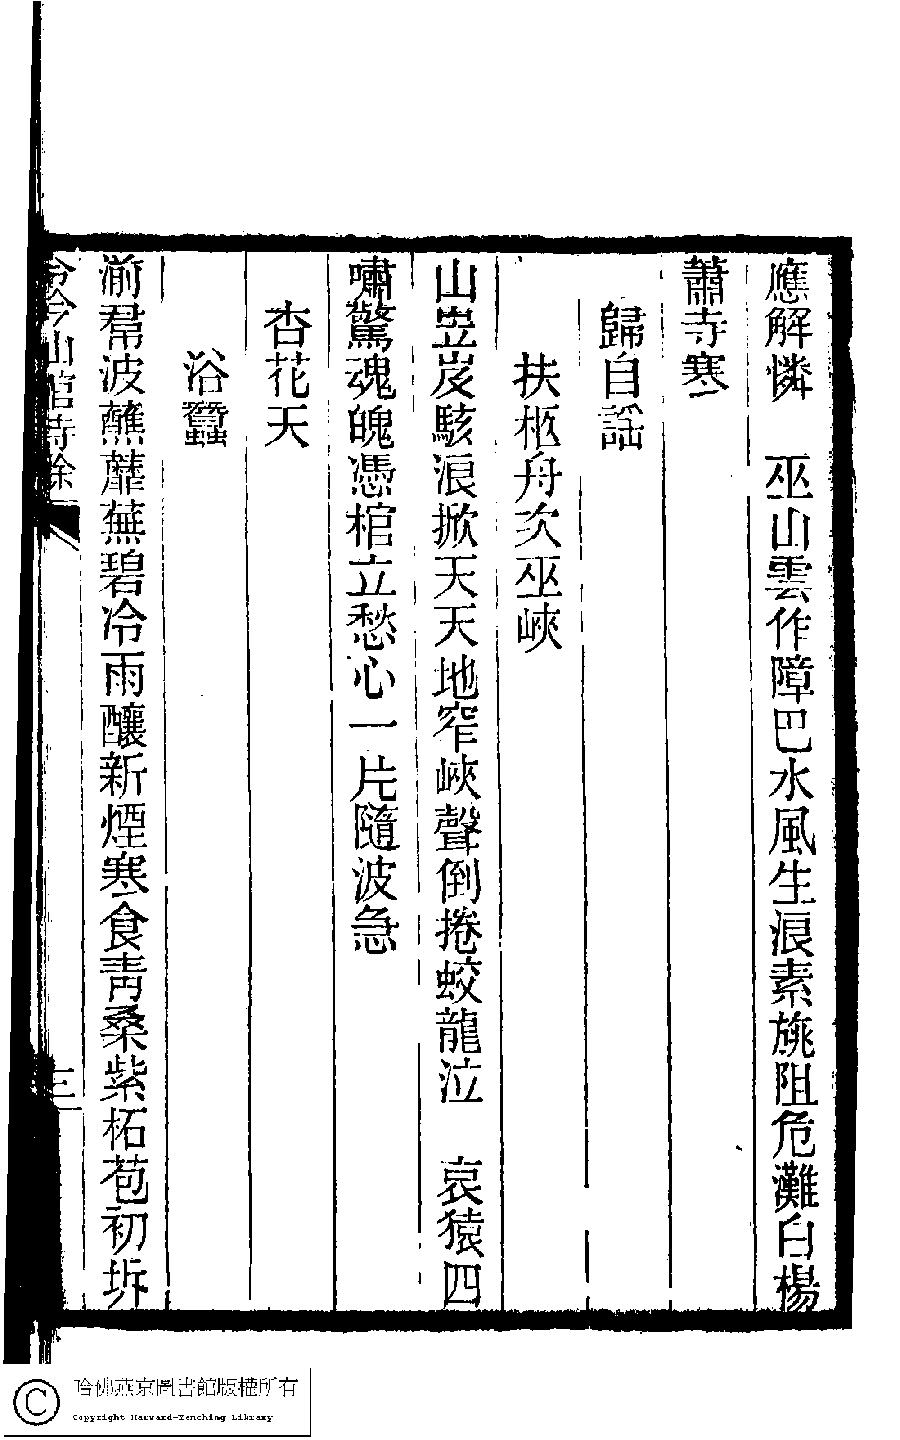 應解憐　巫山雲作障巴水風生浪素旐阻危灘白楊
蕭寺寒
歸自謠
扶柩舟次巫峽
山岦岌駭浪掀天天地窄峽聲倒捲蛟龍泣　哀猿四
嘯驚魂魄憑棺立愁心一片隨波急
杏花天
浴蠶
湔帬波蘸蘼蕪碧冷雨釀新煙寒食靑桑紫柘苞初坼
山館詩餘
三
哈佛燕京圖書館版權所有
Copyright Harvard-Yenching Library